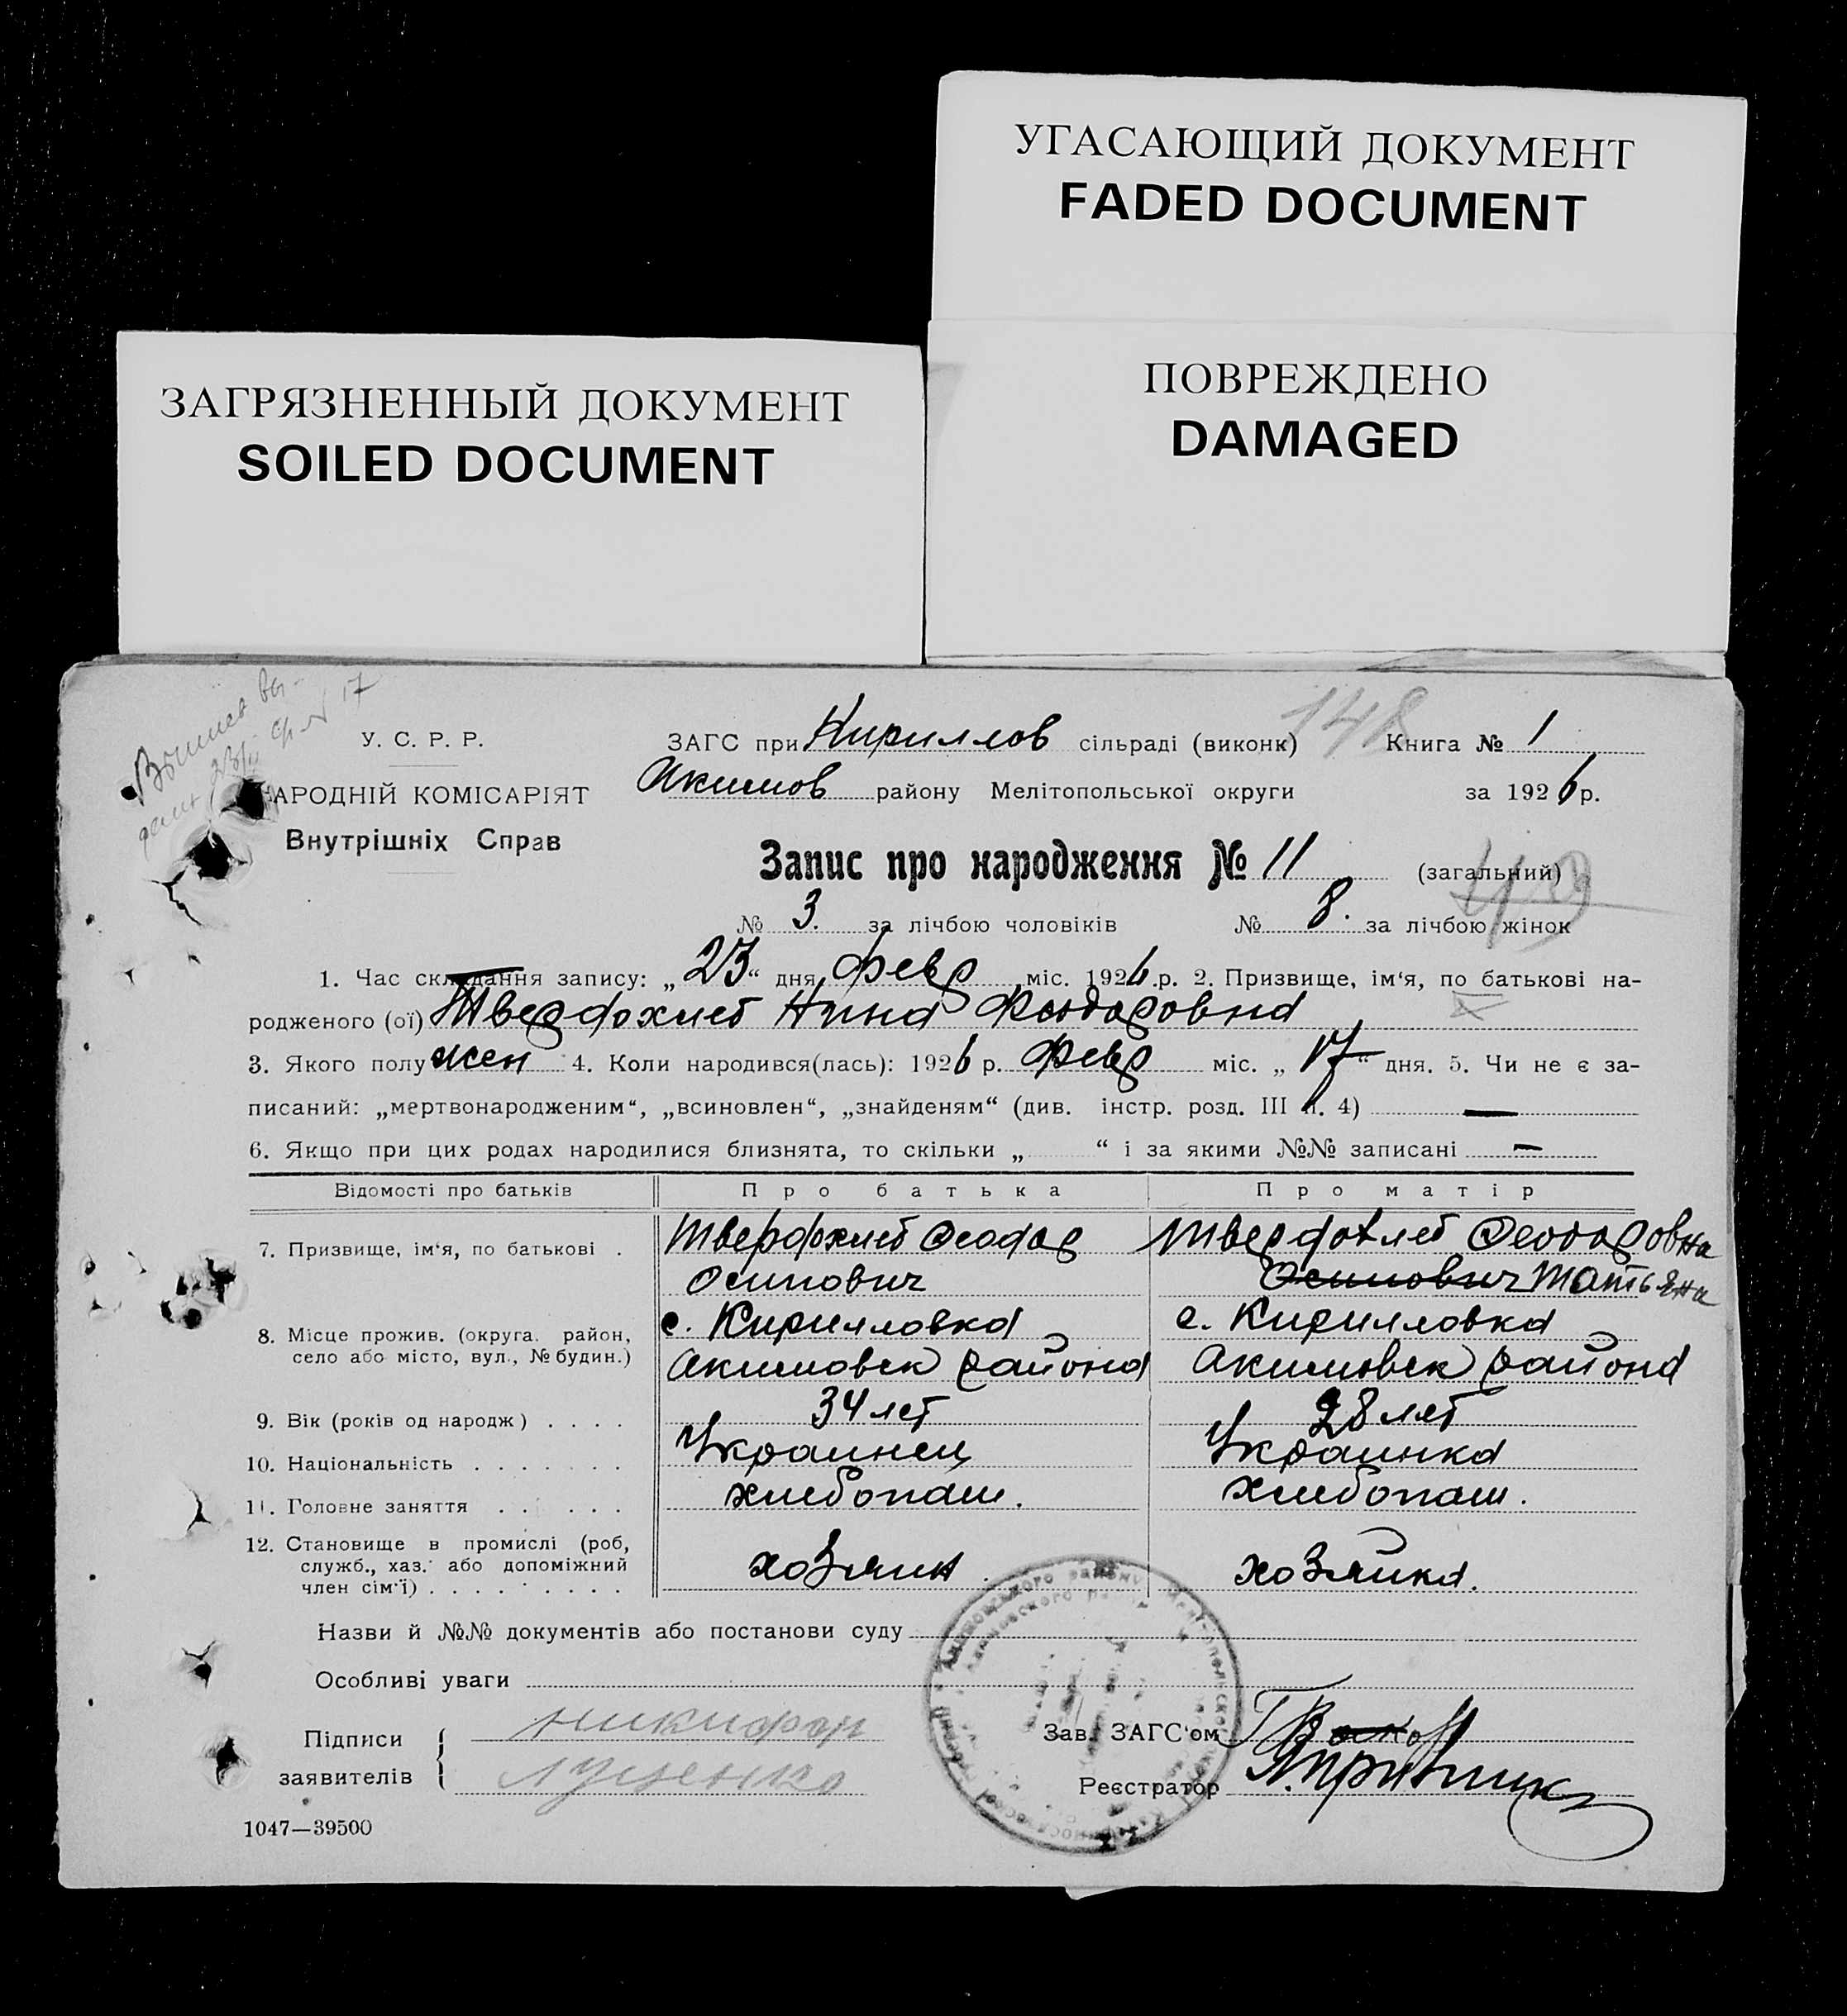 УГАСАЮЩИЙ ДОКУМЕНТ
FADED DOCUMENT
ЗАГРЯЗНЕННЫЙ ДОКУМЕНТ
SOILED DOCUMENT
ПОВРЕЖДЕНО
DAMAGED
17
148
У. С. Р. Р.
ЗАГС при Кириллов сільраді (виконк) Книга № 1
АРОДНІЙ КОМІСАРІЯТ
Акимов району Мелітопольської округи за 1926 р.
Внутрішніх Справ
Запис про народження № 11 (загальний)
№ 3. за лічбою чоловіків № 8. за лічбою жінок
1. Час складання запису: „ 23 “ дня февр міс. 1926 р. 2. Призвище, ім‘я, по батькові на-
родженого (ої) Твердохлеб Нина Феодоровна
3. Якого полу жен 4. Коли народився(лась): 1926 р. Февр міс. „ 17 “ дня. 5. Чи не є за-
писаний: „мертвонародженим“, „всиновлен“, „знайденям“ (див. інстр. розд. III п. 4) —
6. Якщо при цих родах народилися близнята, то скільки „ “ і за якими №№ записані —
Відомості про батьків Про батька Про матір
7. Призвище, ім‘я, по батькові . Твердохлеб Феодор Твердохлеб Феодоровна
Осипович Осипович Татьяна
8. Місце прожив. (округа, район, с. Кирилловка с. Кирилловка
село або місто, вул., № будин.) Акимовск района Акимовск района
9. Вік (років од народж) . . . . 34 лет 28 лет
10. Національність . . . . . . . Украинец Украинка
11. Головне заняття . . . . . . хлебопаш. хлебопаш.
12. Становище в промислі (роб,
служб., хаз. або допоміжний хозяин хозяйка.
член сім‘ї) . . . . . . . . .
Назви й №№ документів або постанови суду
Особливі уваги
Підписи Никифор Зав. ЗАГС‘ом
заявителів Луценко Реєстратор
1047—39500